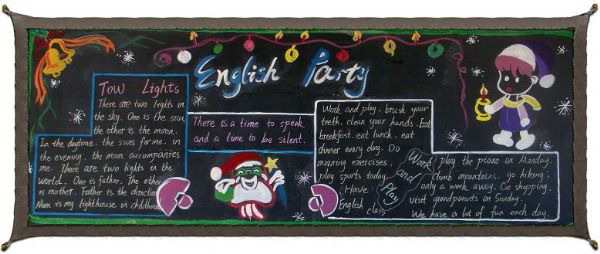 English Party
Tow Lights
There are two lights in
the sky. One is the sun,
the other is the moon.
In the daytime. the suns for me. in
the evening. the moon accompanies
me. There are two lights in the
world. One is father. The other
is mother. Father is the direction
Mom is my lighthouse in childhood
There is a time to speak
and a time to be silent.
Work and play. brush your
teeth. clean your hands. Eat
breakfast. eat lunch. eat
dinner every day. Do
morning exercises.
play sports today.
Have
English class
Work
and
Play
play the piano on Monday.
Climb mountains. go hiking.
only a week away. Go shopping.
visit grandparents on Sunday.
We have a lot of fun each day.